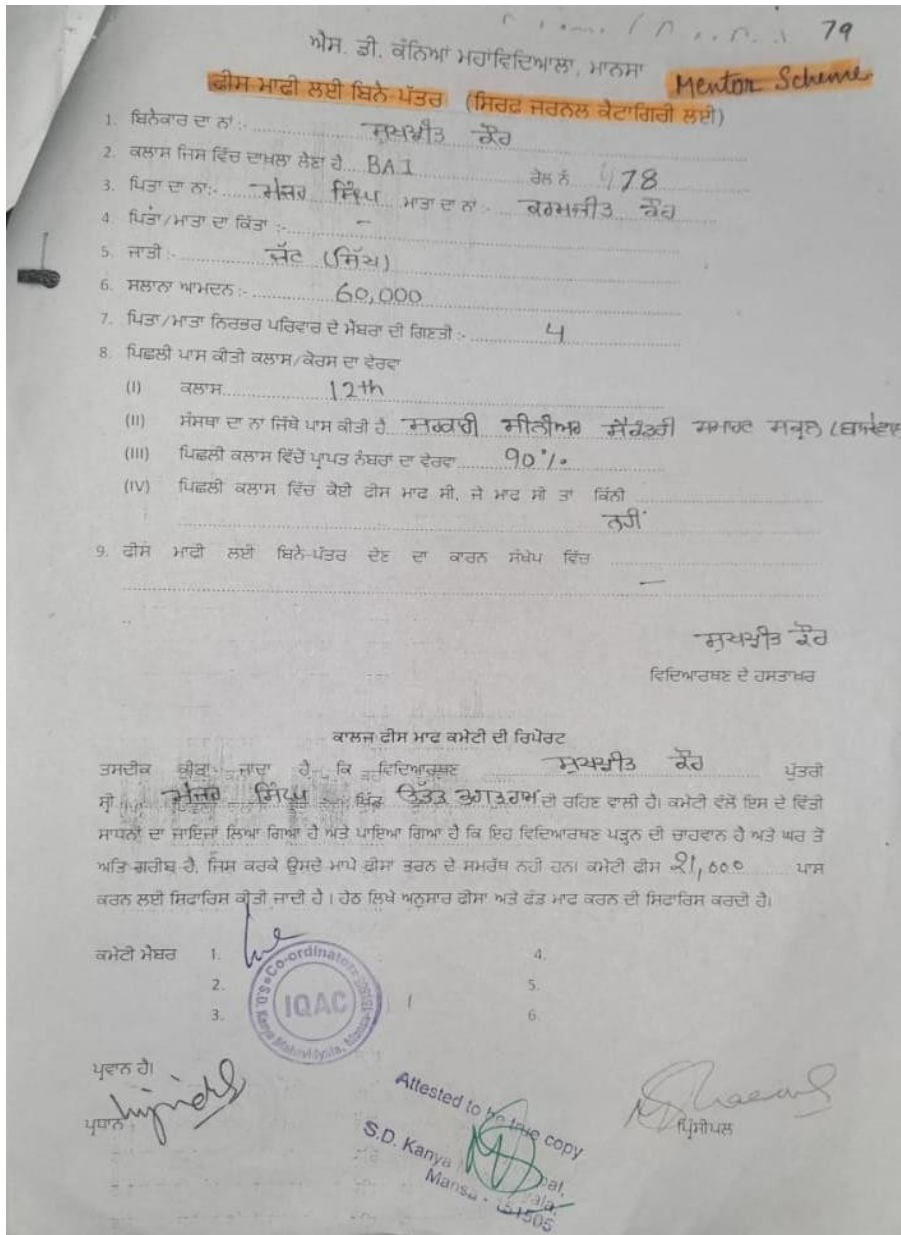 79
ਐਸ. ਡੀ. ਕੰਨਿਆਂ ਮਹਾਂਵਿਦਿਆਲਾ, ਮਾਨਸਾ
Mentor Scheme
ਫੀਸ ਮਾਫੀ ਲਈ ਬਿਨੈ-ਪੱਤਰ (ਸਿਰਫ ਜਰਨਲ ਕੈਟਾਗਿਰੀ ਲਈ)
1. ਬਿਨੈਕਾਰ ਦਾ ਨਾਂ :- ਸੁਖਪ੍ਰੀਤ ਕੌਰ
2. ਕਲਾਸ ਜਿਸ ਵਿੱਚ ਦਾਖਲਾ ਲੈਣਾ ਹੈ BA I ਰੋਲ ਨੰ 478
3. ਪਿਤਾ ਦਾ ਨਾਂ:- ਮੇਜਰ ਸਿੰਘ ਮਾਤਾ ਦਾ ਨਾਂ :- ਕਰਮਜੀਤ ਕੌਰ
4. ਪਿਤਾ/ਮਾਤਾ ਦਾ ਕਿੱਤਾ :- –
5. ਜਾਤੀ :- ਜੱਟ (ਸਿੱਖ)
6. ਸਲਾਨਾ ਆਮਦਨ :- 60,000
7. ਪਿਤਾ/ਮਾਤਾ ਨਿਰਭਰ ਪਰਿਵਾਰ ਦੇ ਮੈਂਬਰਾਂ ਦੀ ਗਿਣਤੀ :- 4
8. ਪਿਛਲੀ ਪਾਸ ਕੀਤੀ ਕਲਾਸ/ਕੋਰਸ ਦਾ ਵੇਰਵਾ
(I) ਕਲਾਸ 12th
(II) ਸੰਸਥਾ ਦਾ ਨਾਂ ਜਿੱਥੇ ਪਾਸ ਕੀਤੀ ਹੈ ਸਰਕਾਰੀ ਸੀਨੀਅਰ ਸੈਕੰਡਰੀ ਸਮਾਰਟ ਸਕੂਲ
(III) ਪਿਛਲੀ ਕਲਾਸ ਵਿੱਚੋਂ ਪ੍ਰਾਪਤ ਨੰਬਰਾਂ ਦਾ ਵੇਰਵਾ 90%
(IV) ਪਿਛਲੀ ਕਲਾਸ ਵਿੱਚ ਕੋਈ ਫੀਸ ਮਾਫ ਸੀ, ਜੇ ਮਾਫ ਸੀ ਤਾਂ ਕਿੰਨੀ
ਨਹੀਂ
9. ਫੀਸ ਮਾਫੀ ਲਈ ਬਿਨੈ-ਪੱਤਰ ਦੇਣ ਦਾ ਕਾਰਨ ਸੰਖੇਪ ਵਿੱਚ
–
ਸੁਖਪ੍ਰੀਤ ਕੌਰ
ਵਿਦਿਆਰਥਣ ਦੇ ਹਸਤਾਖਰ
ਕਾਲਜ ਫੀਸ ਮਾਫ ਕਮੇਟੀ ਦੀ ਰਿਪੋਰਟ
ਤਸਦੀਕ ਕੀਤਾ ਜਾਂਦਾ ਹੈ, ਕਿ ਵਿਦਿਆਰਥਣ ਸੁਖਪ੍ਰੀਤ ਕੌਰ ਪੁੱਤਰੀ
ਸ੍ਰੀ ਮੇਜਰ ਸਿੰਘ ਪਿੰਡ ਉੱਤਤ ਭਗਤਰਾਮ ਦੀ ਰਹਿਣ ਵਾਲੀ ਹੈ। ਕਮੇਟੀ ਵੱਲੋਂ ਇਸ ਦੇ ਵਿੱਤੀ
ਸਾਧਨਾਂ ਦਾ ਜਾਇਜਾ ਲਿਆ ਗਿਆ ਹੈ ਅਤੇ ਪਾਇਆ ਗਿਆ ਹੈ ਕਿ ਇਹ ਵਿਦਿਆਰਥਣ ਪੜ੍ਹਨ ਦੀ ਚਾਹਵਾਨ ਹੈ ਅਤੇ ਘਰ ਤੋਂ
ਅਤਿ ਗਰੀਬ ਹੈ, ਜਿਸ ਕਰਕੇ ਉਸਦੇ ਮਾਪੇ ਫੀਸਾਂ ਭਰਨ ਦੇ ਸਮਰੱਥ ਨਹੀਂ ਹਨ। ਕਮੇਟੀ ਫੀਸ 21,000 ਪਾਸ
ਕਰਨ ਲਈ ਸਿਫਾਰਿਸ ਕੀਤੀ ਜਾਂਦੀ ਹੈ। ਹੇਠ ਲਿਖੇ ਅਨੁਸਾਰ ਫੀਸਾਂ ਅਤੇ ਫੰਡ ਮਾਫ ਕਰਨ ਦੀ ਸਿਫਾਰਿਸ ਕਰਦੀ ਹੈ।
ਕਮੇਟੀ ਮੈਂਬਰ 1. 4.
2. 5.
3. 6.
Co-ordinator
IQAC
S.D. Kanya Mahavidyala, Mansa-151505
ਪ੍ਰਵਾਨ ਹੈ।
ਪ੍ਰਧਾਨ
ਪ੍ਰਿੰਸੀਪਲ
Attested to be true copy
S.D. Kanya
Mansa - 151505